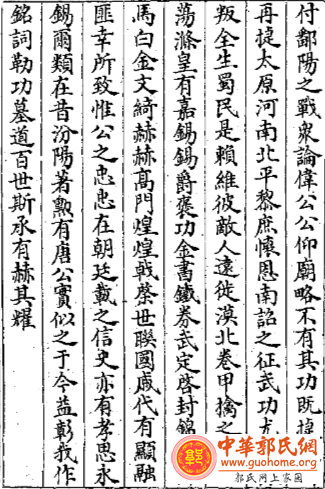 付鄱陽之戰衆論偉公公仰廟略不有其功旣掉
再捷太原河南北平黎庶懷恩南詔之征武功尤
叛全生蜀民是賴維彼敵人遠徙漠北卷甲擒之
蕩滌皇有嘉錫錫爵褒功金書鐵券武定啓封錦
馬白金文綺赫赫高門煌煌戟棨世聯國戚代有顯融
匪幸所致惟公之忠忠在朝廷載之信史亦有孝思永
錫爾類在昔汾陽著勲有唐公實似之于今益彰我作
銘詞勒功墓道百世斯承有赫其耀
中華郭氏網
www.guohome.org
郭氏网上家園